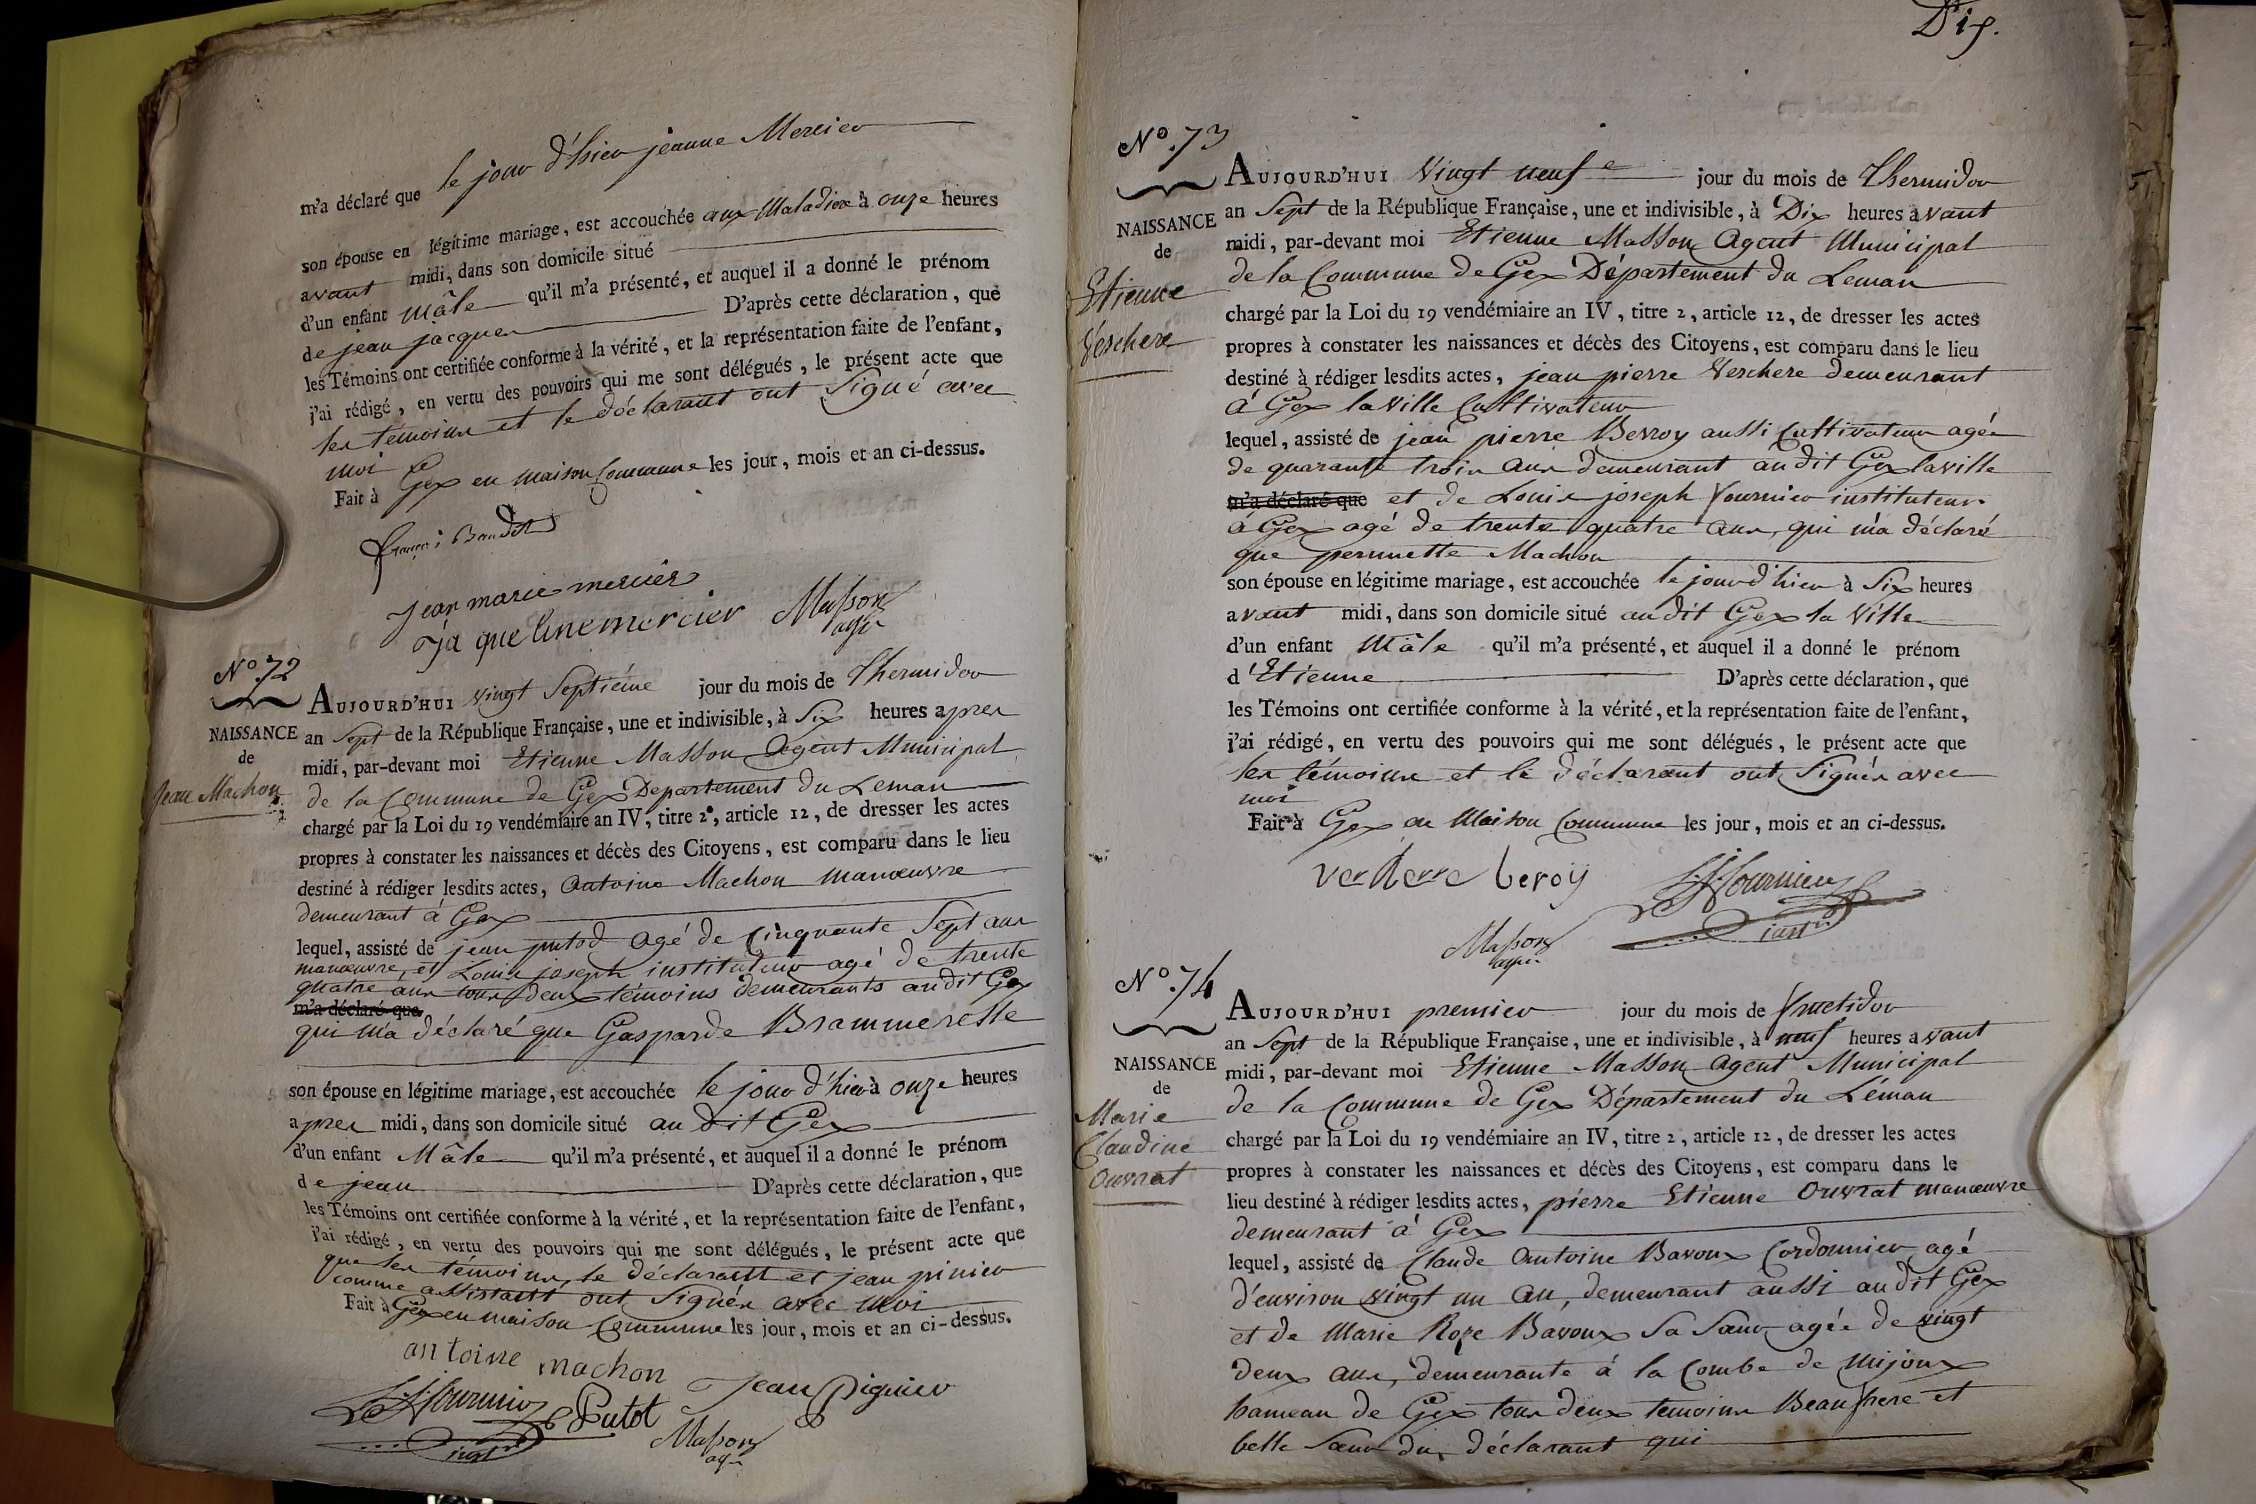 m'a déclaré que le jour d'hier jeanne Mercier
son épouse en légitime mariage, est accouchée aux Maladiere à onze heures
avant midi, dans son domicile situé
d'un enfant Mâle qu'il m'a présenté, et auquel il a donné le prénom
de jean jacques D'après cette déclaration, que
les Témoins ont certifiée conforme à la vérité, et la représentation faite de l'enfant,
j'ai rédigé, en vertu des pouvoirs qui me sont délégués, le présent acte que
les témoins et le déclarant ont Signé avec
moi
Fait à Gex en maison Commune les jour, mois et an ci-dessus.
jean marie mercier
ja que line mercier Masson
agt
N.º 72
AUJOURD'HUI vingt Septiéme jour du mois de Thermidor
NAISSANCE
de
Jean Machon
an Sept de la République Française, une et indivisible, à Six heures apres
midi, par-devant moi Etienne Masson Agent Municipal
de la Commune de Gex Departement du Leman
chargé par la Loi du 19 vendémiaire an IV, titre 2e, article 12, de dresser les actes
propres à constater les naissances et décès des Citoyens, est comparu dans le lieu
destiné à rédiger lesdits actes, Antoine Machon manœuvre
demeurant à Gex
lequel, assisté de jean putod agé de Cinquante Sept ans
manœuvre, et Louis joseph instituteur agé de trente
quatre ans tous deux témoins demeurants audit Gex
m'a déclaré que
qui m'a déclaré que Gasparde Brammerelle
son épouse en légitime mariage, est accouchée le jour d'hier à onze heures
apres midi, dans son domicile situé au dit Gex
d'un enfant Mâle qu'il m'a présenté, et auquel il a donné le prénom
de jean D'après cette déclaration, que
les Témoins ont certifiée conforme à la vérité, et la représentation faite de l'enfant,
j'ai rédigé, en vertu des pouvoirs qui me sont délégués, le présent acte que
que les témoins, le déclarant et jean pinier
comme assistant ont Signés avec moi
Fait à Gex en maison Commune les jour, mois et an ci-dessus.
antoine machon
Jean Piguier
LJ fournier Putot
instr
Masson
agt
Dix.
N.º 73
AUJOURD'HUI Vingt neuf e jour du mois de Thermidor
NAISSANCE
de
Etienne
Verchere
an Sept de la République Française, une et indivisible, à Dix heures avant
midi, par-devant moi Etienne Masson Agent Municipal
de la Commune de Gex Département du Leman
chargé par la Loi du 19 vendémiaire an IV, titre 2, article 12, de dresser les actes
propres à constater les naissances et décès des Citoyens, est comparu dans le lieu
destiné à rédiger lesdits actes, jean pierre Verchere demeurant
à Gex la Ville Cultivateur
lequel, assisté de jean pierre Berroy aussi Cultivateur agée
de quarante trois ans demeurant audit Gex laville
m'a déclaré que et de Louis joseph fournier instituteur
à Gex agé de trente quatre ans, qui m'a déclaré
que pernnette Machon
son épouse en légitime mariage, est accouchée le jour d'hier à Six heures
avant midi, dans son domicile situé au dit Gex la Ville
d'un enfant Mâle qu'il m'a présenté, et auquel il a donné le prénom
d'Etienne D'après cette déclaration, que
les Témoins ont certifiée conforme à la vérité, et la représentation faite de l'enfant,
j'ai rédigé, en vertu des pouvoirs qui me sont délégués, le présent acte que
les témoins et le déclarant ont Signés avec
moi
Fait à Gex en Maison Commune les jour, mois et an ci-dessus.
beroy LJ fournier
instr
Masson
agt
N.º 74
AUJOURD'HUI premier jour du mois de fructidor
NAISSANCE
de
Marie
Claudine
Ouvrat
an Sept de la République Française, une et indivisible, à neuf heures avant
midi, par-devant moi Etienne Masson Agent Municipal
de la Commune de Gex Département du Léman
chargé par la Loi du 19 vendémiaire an IV, titre 2, article 12, de dresser les actes
propres à constater les naissances et décès des Citoyens, est comparu dans le
lieu destiné à rédiger lesdits actes, pierre Etienne Ouvrat manœuvre
demeurant à Gex
lequel, assisté de Claude Antoine Bavoux Cordonnier agé
d'environ vingt un an, demeurant aussi audit Gex
et de Marie Roze Bavoux Sa Sœur agée de vingt
deux ans, demeurante à la Combe de Mijoux
hameau de Gex tous deux temoins Beaufrere et
belle Sœur du déclarant qui